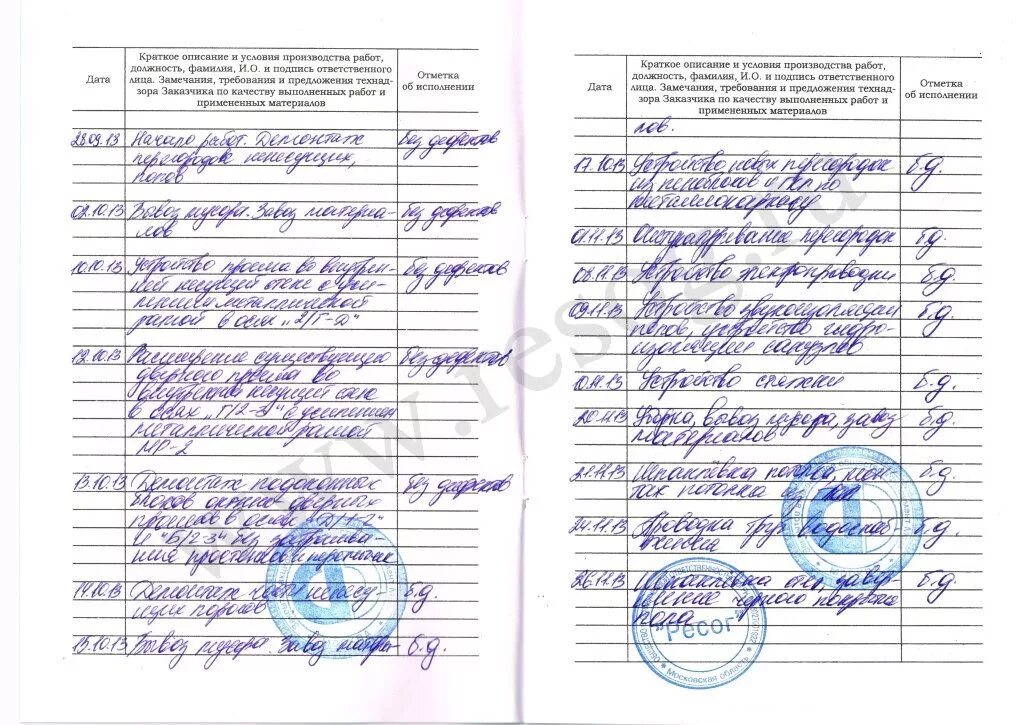 Дата
Краткое описание и условия производства работ,
должность, фамилия, И.О. и подпись ответственного
лица. Замечания, требования и предложения технад-
зора Заказчика по качеству выполненных работ и
примененных материалов
Отметка
об исполнении
28.09.13 Начало работ. Демонтаж без дефектов
перегородок ненесущих,
полов
02.10.13 Вывоз мусора. Завоз материа- без дефектов
лов
10.10.13 Устройство проема во внутрен- без дефектов
ней несущей стене с уси-
лением металлической
рамой в осях "2/Г-Д"
12.10.13 Расширение существующего без дефектов
дверного проема во
внутренней несущей стене
в осях "Г/2-3" с усилением
металлической рамой
МР-2
13.10.13 Демонтаж подоконных без дефектов
блоков оконно-дверных
проемов в осях
и "Б/2-3" без затрагива-
ния простенков и перемычек
14.10.13 Демонтаж части ненесу- б.д.
щих порогов
15.10.13 Вывоз мусора. Завоз материа- б.д.
Дата
Краткое описание и условия производства работ,
должность, фамилия, И.О. и подпись ответственного
лица. Замечания, требования и предложения технад-
зора Заказчика по качеству выполненных работ и
примененных материалов
Отметка
об исполнении
лов.
17.10.13 Устройство новых перегородок б.д.
из пеноблоков и ГКЛ по
металлокаркасу
01.11.13 Оштукатуривание перегородок б.д.
03.11.13 Устройство электропроводки б.д.
09.11.13 Устройство звукоизоляции б.д.
полов, устройство гидро-
изоляции санузлов
10.11.13 Устройство стяжки б.д.
20.11.13 Уборка, вывоз мусора, завоз б.д.
материалов
21.11.13 Шпаклёвка потолка, мон- б.д.
таж потолка из ГКЛ
24.11.13 Проводка труб водоснаб- б.д.
жения
26.11.13 Шпаклёвка стен, завер- б.д.
шение черного покрытия
пола
"Ресог"
Московская область
www.resog.ru